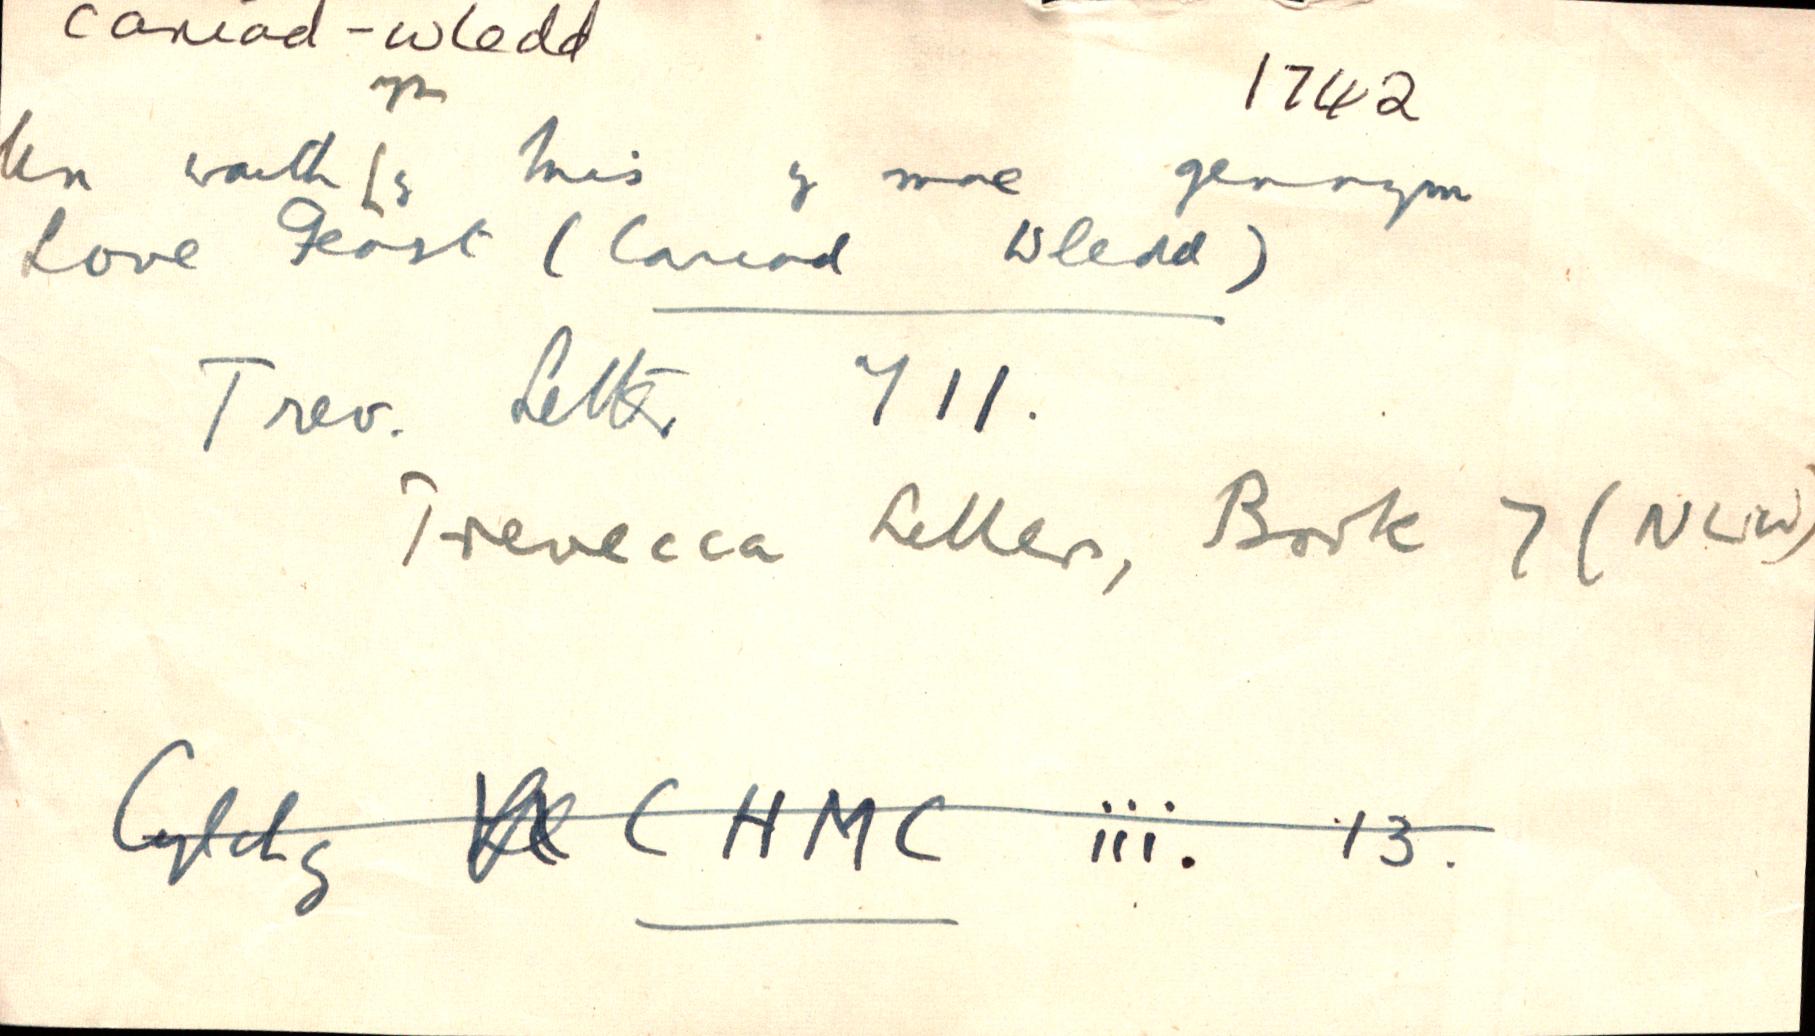 cariad-wledd
1742
yn
Un waith y mis y mae gennym
Love Feast (Cariad Wledd)
Trev. Letter 711.
Trevecca Letters, Book 7 (NLW)
Cylchg CHMC iii. 13.